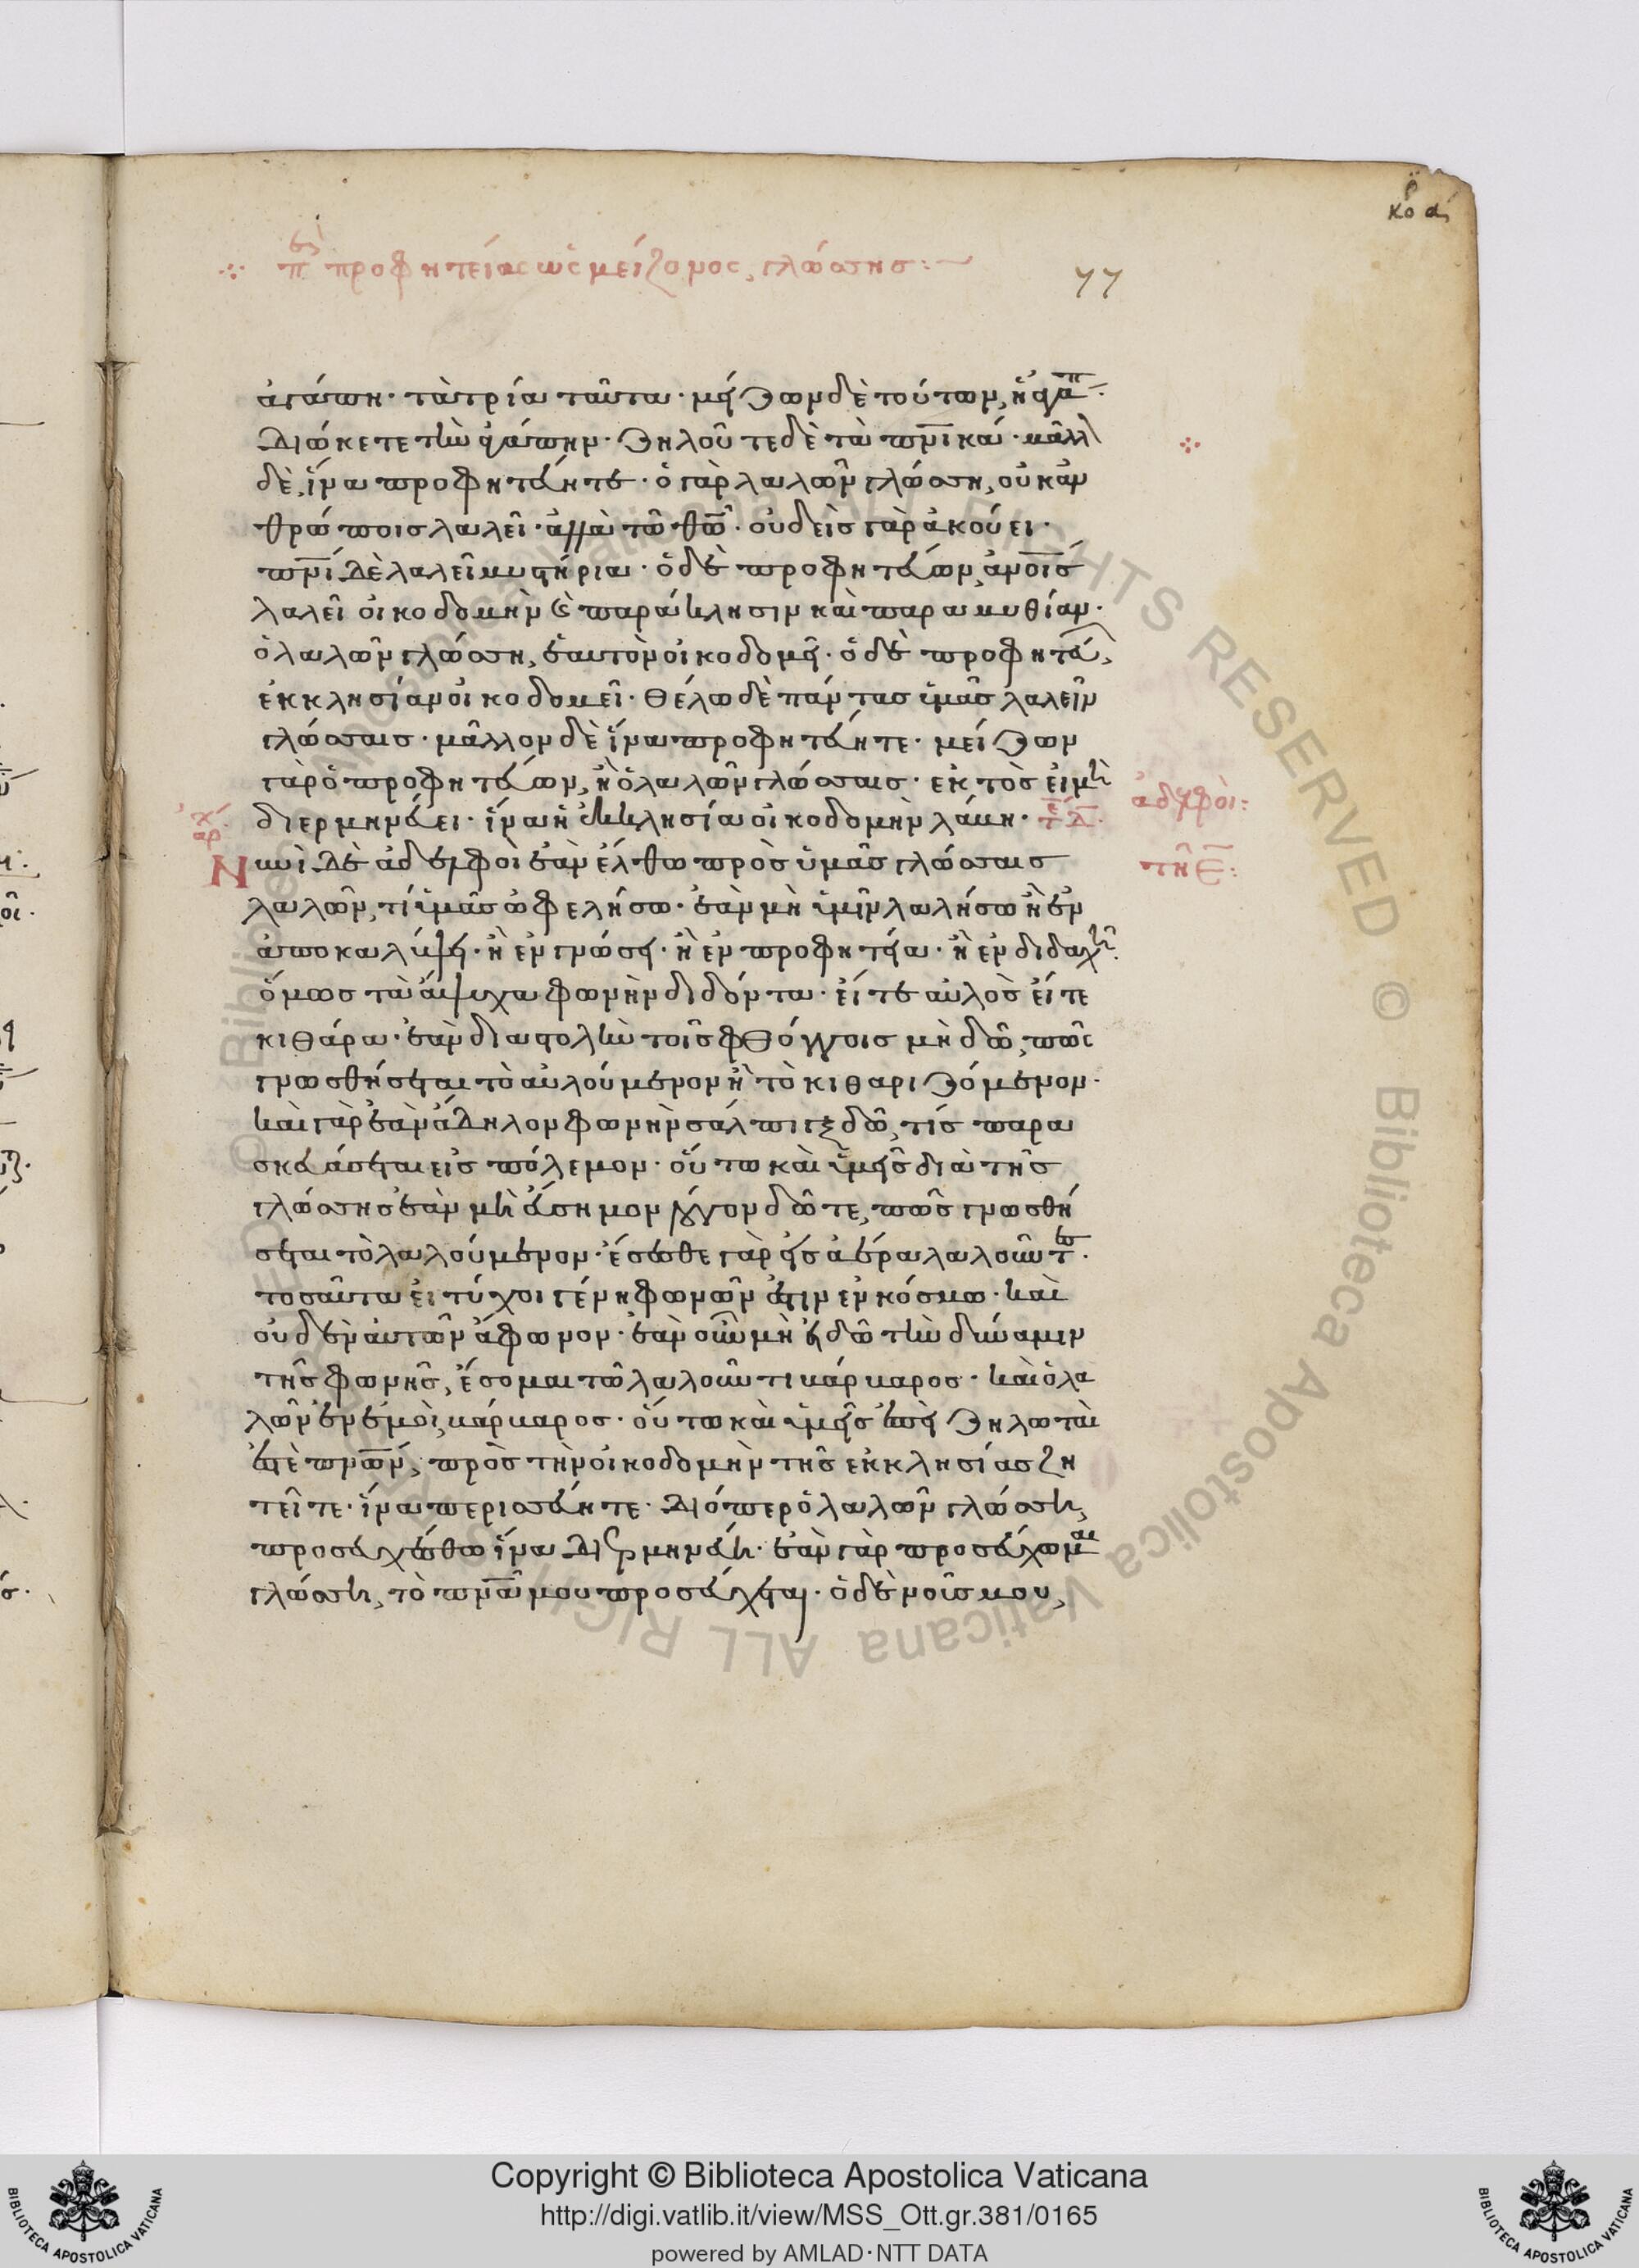 κδ α
ϛι π προφητείας ὡς μείζονος, γλώσσης:~
77
ἀγάπη· τὰ τρία ταῦτα· μείζων δὲ τούτων, ἡ ἀγαπ·
Διώκετε τὴν ἀγάπην· ζηλοῦτε δὲ τὰ πνικά· μᾶλλ
δὲ, ἵνα προφητεύητε· ὁ γὰρ λαλῶν γλώσση, οὐκ ἀν
θρώποις λαλεῖ· ἀλλὰ τῶ θῶ· οὐδεὶς γὰρ ἀκούει·
πνι δὲ λαλεῖ μυστήρια· ὁ δὲ προφητεύων, ἀνοις
λαλεῖ οἰκοδομὴν καὶ παράκλησιν καὶ παραμυθίαν·
ὁ λαλῶν γλώσση, ἑαυτὸν οἰκοδομεῖ· ὁ δὲ προφητεύ,
ἐκκλησίαν οἰκοδομεῖ· θέλω δὲ πάντας ὑμᾶς λαλεῖν
γλώσσαις· μᾶλλον δὲ ἵνα προφητεύητε· μείζων
γὰρ ὁ προφητεύων, ἢ ὁ λαλῶν γλώσσαις· ἐκτὸς εἰ μὴ
ἀδελφοὶ:
διερμηνεύει· ἵνα ἡ ἐκκλησία οἰκοδομὴν λάβη· τε Δ·
αρχ
Νυνὶ δὲ ἀδελφοὶ ἐὰν ἔλθω πρὸς ὑμᾶς γλώσσαις
τῆ Ε:
λαλῶν, τί ὑμᾶς ὠφελήσω· ἐὰν μὴ ὑμῖν λαλήσω ἢ ἐν
ἀποκαλύψει· ἢ ἐν γνώσει· ἢ ἐν προφητεία· ἢ ἐν διδαχῆ·
ὅμως τὰ ἄψυχα φωνὴν διδόντα· εἴτε αὐλὸς εἴτε
κιθάρα· ἐὰν διαστολὴν τοῖς φθόγγοις μὴ δῶ, πῶς
γνωσθήσεται τὸ αὐλούμενον ἢ τὸ κιθαριζόμενον·
καὶ γὰρ ἐὰν ἄδηλον φωνὴν σάλπιγξ δῶ, τίς παρα
σκευάσεται εἰς πόλεμον· οὕτω καὶ ὑμεῖς διὰ τῆς
γλώσσης ἐὰν μὴ εὔσημον λόγον δῶτε, πῶς γνωσθή
σεται τὸ λαλούμενον· ἔσεσθε γὰρ εἰς ἀέρα λαλοῦντες·
τοσαῦτα εἰ τύχοι γένη φωνῶν ἐστιν ἐν κόσμω· καὶ
οὐδὲν αὐτῶν ἄφωνον· ἐὰν οὖν μὴ εἰδῶ τὴν δύναμιν
τῆς φωνῆς, ἔσομαι τῶ λαλοῦντι βάρβαρος· καὶ ὁ λα
λῶν ἐν ἐμοὶ, βάρβαρος· οὕτω καὶ ὑμεῖς ἐπεὶ ζηλωταὶ
ἐστὲ πνων, πρὸς τὴν οἰκοδομὴν τῆς ἐκκλησίας ζη
τεῖτε· ἵνα περισσεύητε· Διόπερ ὁ λαλῶν γλώσση,
προσευχέσθω ἵνα διερμηνεύη· ἐὰν γὰρ προσεύχωμαι
γλώσση, τὸ πνα μου προσεύχεται· ὁ δὲ νοῦς μου,
© Biblioteca Apostolica Vaticana ALL RIGHTS RESERVED
Copyright © Biblioteca Apostolica Vaticana
http://digi.vatlib.it/view/MSS_Ott.gr.381/0165
powered by AMLAD·NTT DATA
BIBLIOTECA APOSTOLICA VATICANA
BIBLIOTECA APOSTOLICA VATICANA